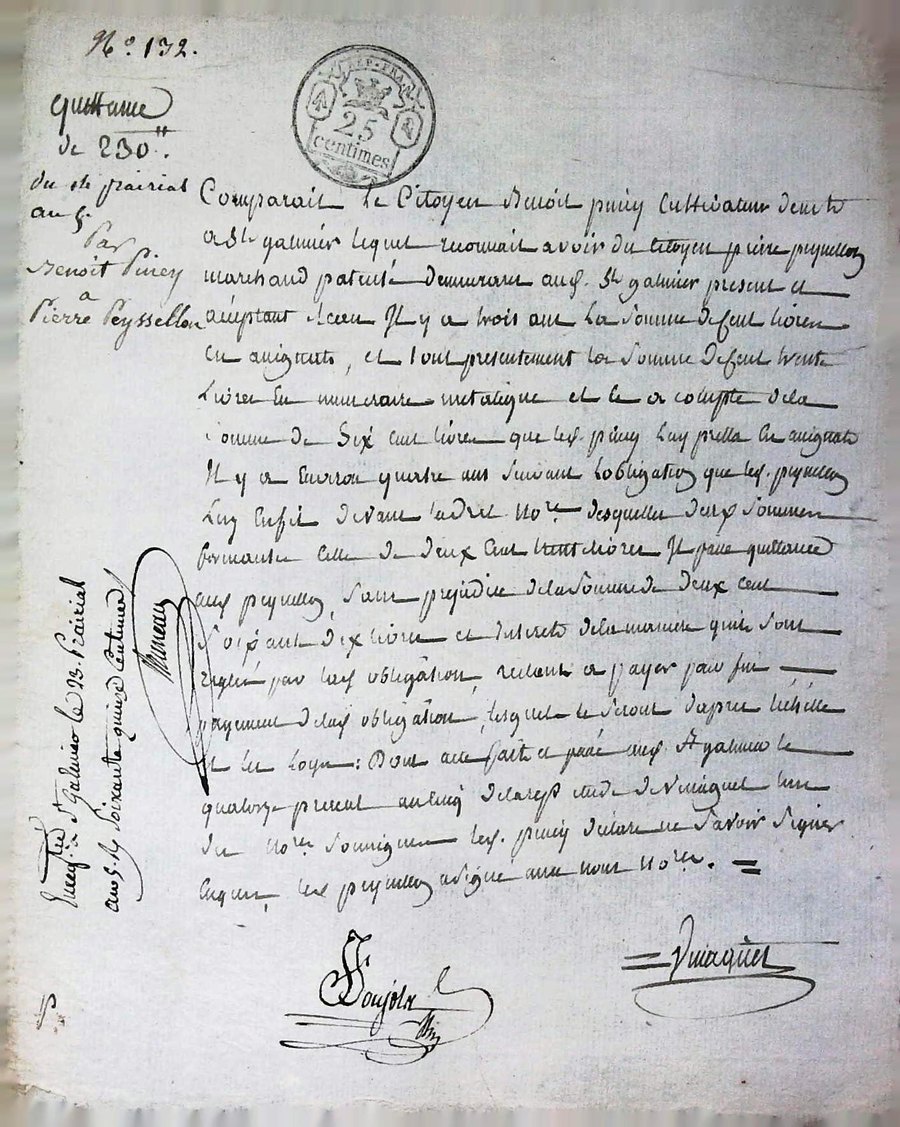 N.º 132.
REP. FRA.
25
centimes
quittance
de 230.tt
du prairial
an 5.
Par
Benoit Piney
a
Pierre Peyssellon
Comparait le Citoyen Benoit piney Cultivateur demt
a St galmier lequel reconnait avoir du Citoyen pierre peyssellon
marchand patenté demeurant aud. St galmier present et
acceptant Receu Il y a trois ans la Somme de Cent livres
En assignats, et tout presentement la Somme de Cent trente
Livres En numeraire metalique et le a compte de la
Somme de Six Cent livres que led. piney Luy pretta En assignats
Il y a Environ quatre ans Suivant Lobligation que led. peyssellon
Luy Enfit devant No.re desquelles deux Sommes
formant Celle de deux Cent trente livres Il passe quittance
aud peyssellon, Sans prejudice de la Somme de deux Cent
Soixante dix livres et Interets de la maniere quils Sont
reglés par lad obligation, restant a payer pour fin
payement de lad obligation, lesquels le Seront dapres léchelle
et les Loyx : Dont acte fait et passé aud St galmier le
quatorze prairial an Cinq de la rep etude de Vinaquet lun
des No.res Soussignes led. piney declare ne Savoir Signer
Enquis, led peyssellon a Signé avec nous No.res.
Enreg.tré a St Galmier le 23 Prairial
an 5. Rd Soixante quinze Centimes
Vinaquet